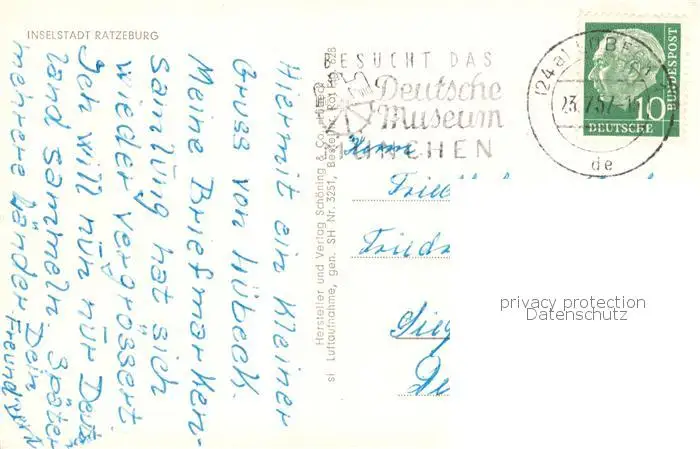 INSELSTADT RATZEBURG
Hiermit ein Kleiner
Gruss von Lübeck.
Meine Briefmarken-
samlung hat sich
wieder vergrössert
Ich will nun nur Deutsch
land sammeln. Später
mehrere Länder.
Dein
Freund
Hersteller und Verlag Schöning & Co., Lübeck
si Luftaufnahme, gen. SH Nr. 3251, Bestell-Nr. Rat 628
BESUCHT DAS
Deutsche
Museum
MÜNCHEN
(24a) LÜBECK
23.7.57
de
10
DEUTSCHE
BUNDESPOST
Herrn
Fried
Friedr
Sieg
privacy protection
Datenschutz